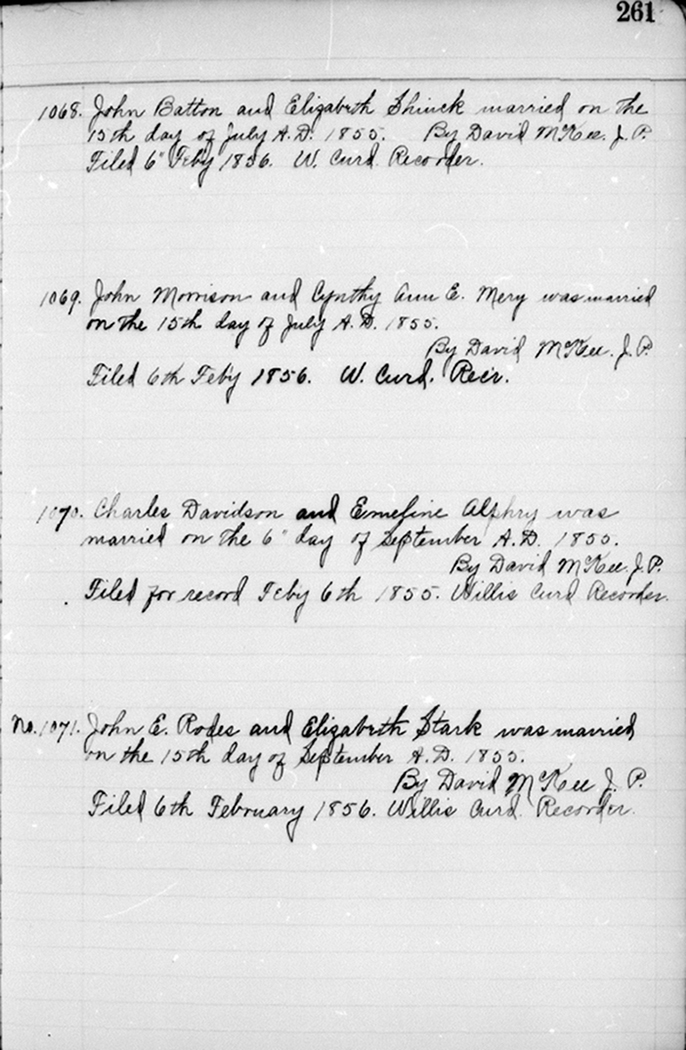 261
1068. John Batton and Elizabeth Shinck married on the
15th day of July A.D. 1855. By David McKee. J. P.
Filed 6" Feby 1856. W. Curd Recorder.
1069. John Morrison and Cynthy Ann E. Mery was married
on the 15th day of July A.D. 1855.
By David McKee. J. P.
Filed 6th Feb'y 1856. W. Curd. Rec'r.
1070. Charles Davidson and Alphry was
married on the 6" day of September A.D. 1855.
By David McKee J. P.
Filed for record Feb'y 6th 1855. Willis Curd Recorder.
No. 1071. John E. Rodes and Elizabeth Stark was married
on the 15th day of September A.D. 1855.
By David McKee J. P.
Filed 6th February 1856. Willis Curd. Recorder.